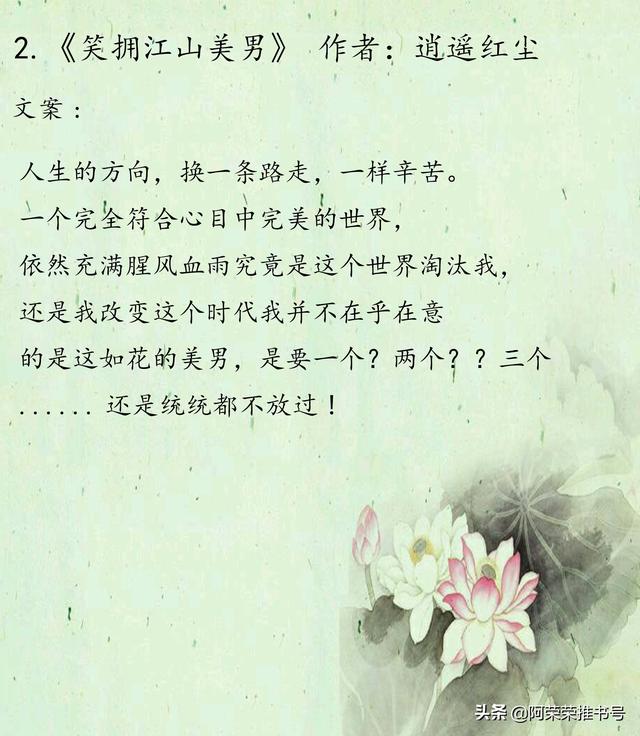 2.《笑拥江山美男》 作者：逍遥红尘
文案：
人生的方向，换一条路走，一样辛苦。
一个完全符合心目中完美的世界，
依然充满腥风血雨究竟是这个世界淘汰我，
还是我改变这个时代我并不在乎在意
的是这如花的美男，是要一个？两个？？三个
......还是统统都不放过！
头条 @阿荣荣推书号